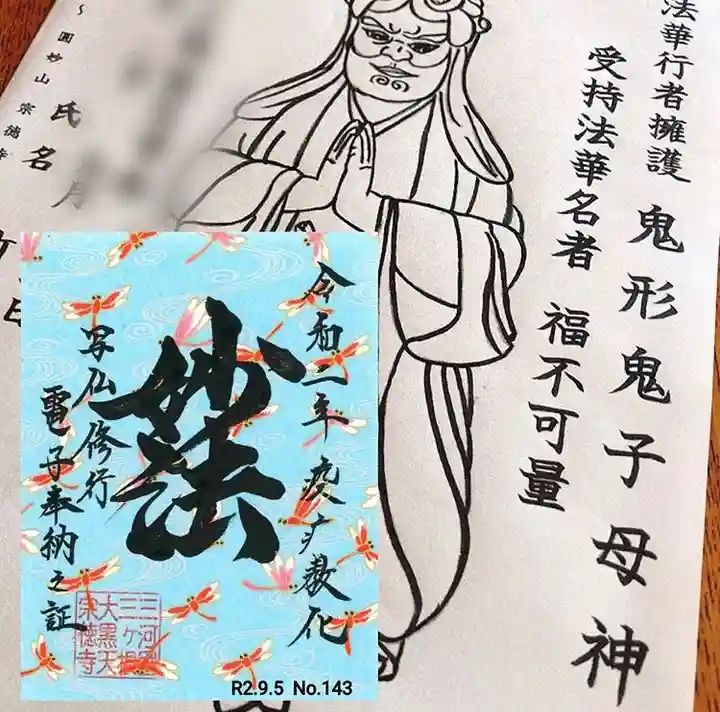 法華行者擁護 鬼形鬼子母神
受持法華名者 福不可量
圓妙山 宗徳寺
氏名
月
令和二年疫
化
妙法
写仏修行
電子奉納之証
三河國
三ヶ根
大黒天
宗徳寺
R2.9.5 No.143